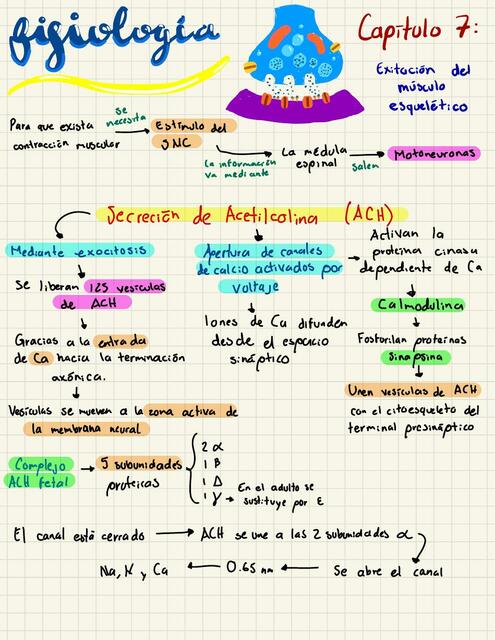 fisiología
Capítulo 7:
Exitación del
músculo
esquelético
Para que exista
contracción muscular
se
necesita
Estímulo del
SNC
La información
va mediante
La médula
espinal
salen
Motoneuronas
Secreción de Acetilcolina (ACH)
Mediante exocitosis
Se liberan 125 vesículas
de ACH
Gracias a la entrada
de Ca hacia la terminación
axónica.
Vesículas se mueven a la zona activa de
la membrana neural
Apertura de canales
de calcio activados por
voltaje
Iones de Ca difunden
desde el espacio
sináptico
Activan la
proteína cinasa
dependiente de Ca
Calmodulina
Fosforilan proteínas
sinapsina
Unen vesículas de ACH
con el citoesqueleto del
terminal presináptico
Complejo
ACH fetal
5 subunidades
proteicas
2 α
1 β
1 Δ
1 γ
En el adulto se
sustituye por ε
El canal está cerrado
ACH se une a las 2 subunidades α
Se abre el canal
0.65 nm
Na, K y Ca